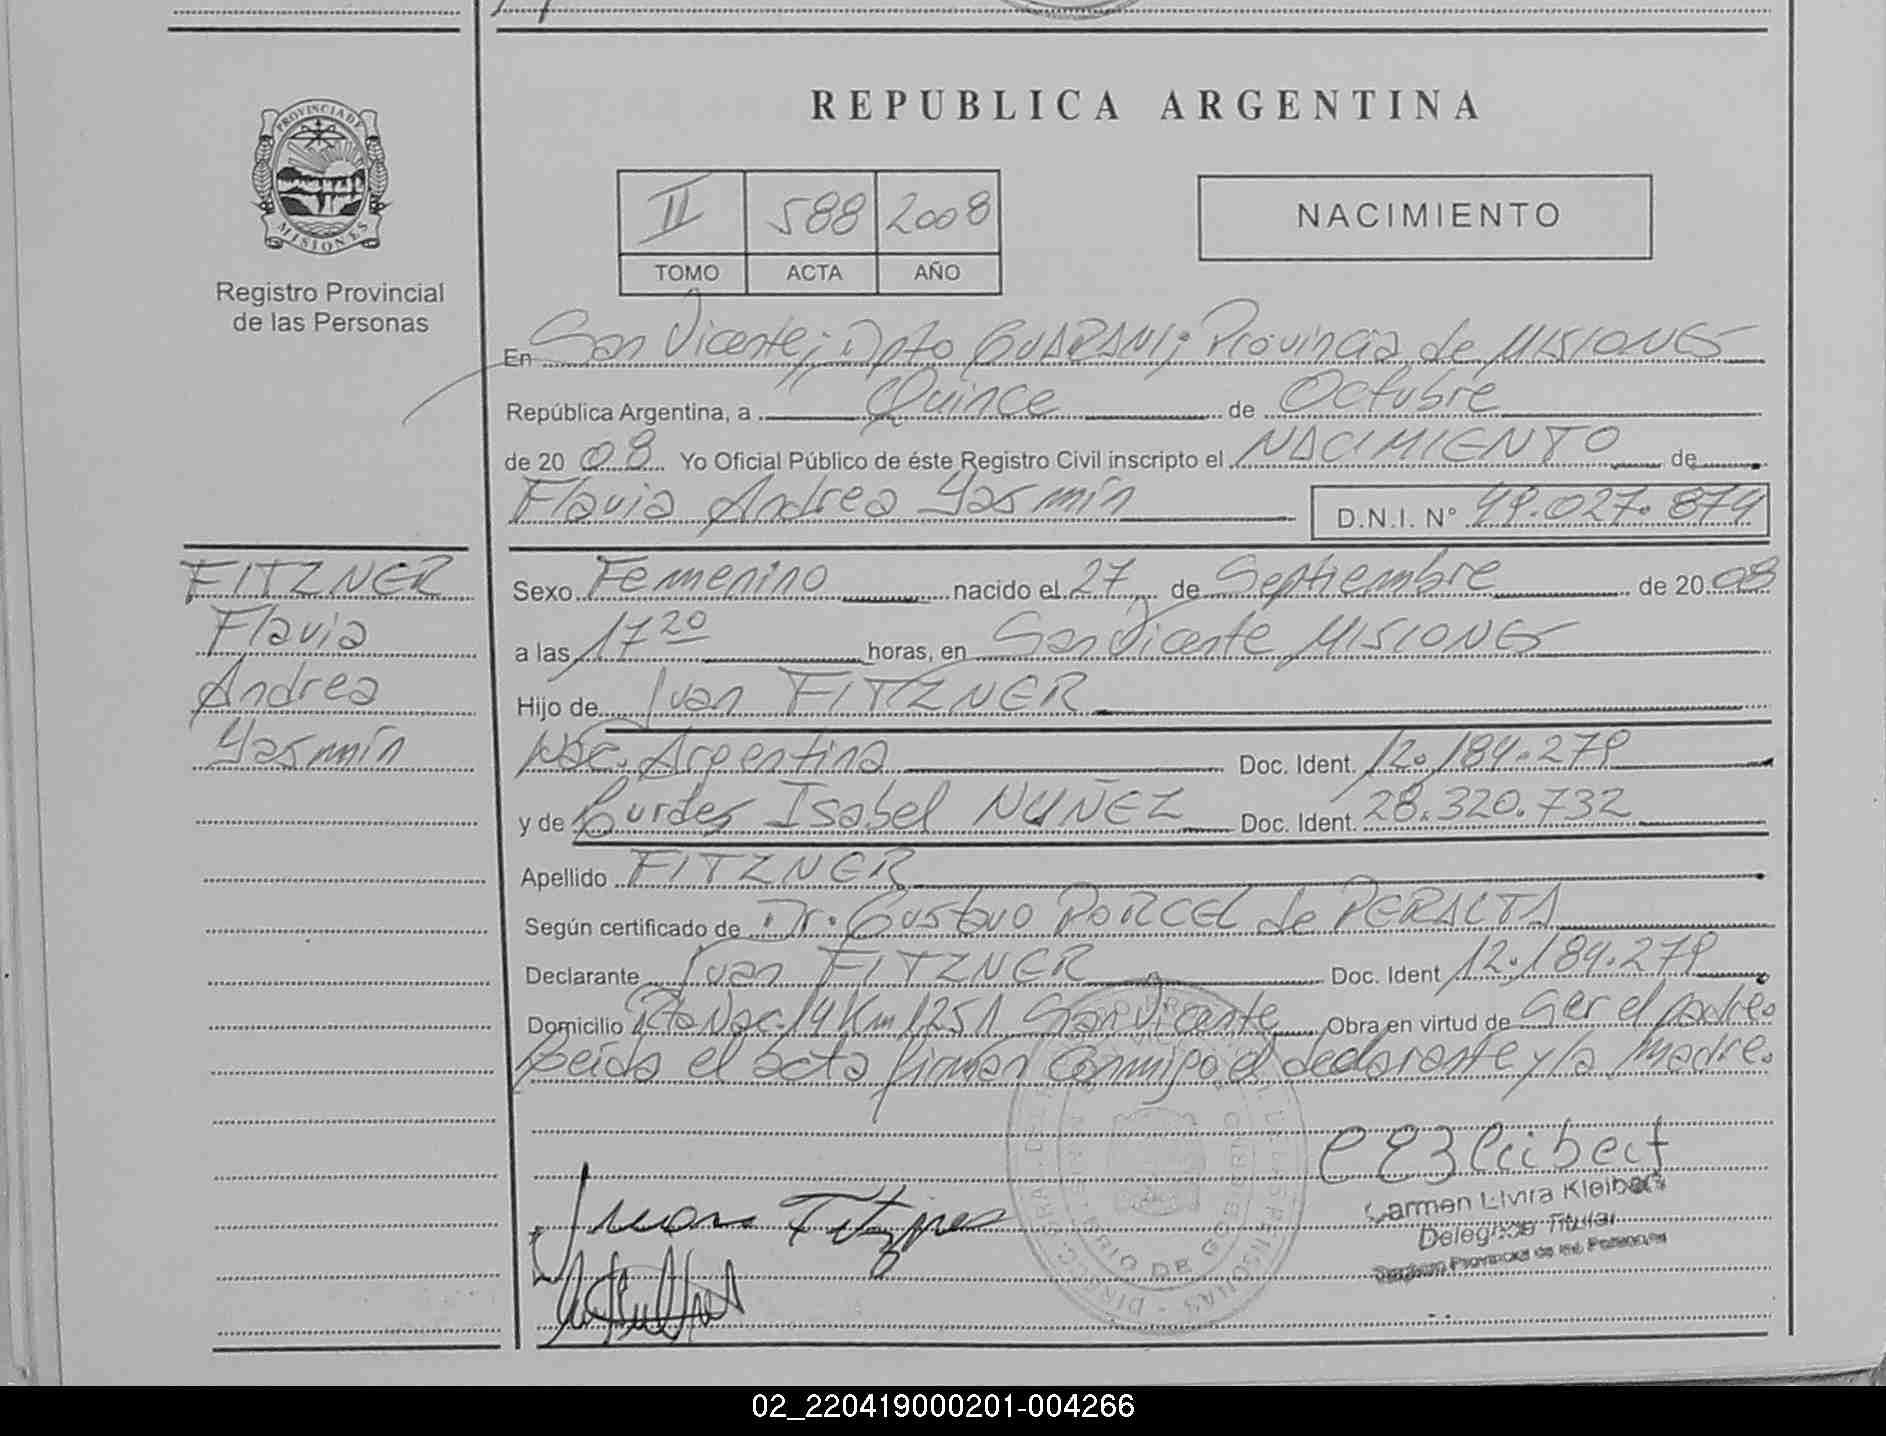 PROVINCIA DE
MISIONES
Registro Provincial
de las Personas
REPUBLICA ARGENTINA
II 588 2008
TOMO ACTA AÑO
NACIMIENTO
En San Vicente; Dpto GUARANI; Provincia de MISIONES
República Argentina, a Quince de Octubre
de 20 08 Yo Oficial Público de éste Registro Civil inscripto el NACIMIENTO de
Flavia Andrea Yasmín D.N.I. N° 49.027.874
FITZNER
Flavia
Andrea
Yasmín
Sexo Femenino nacido el 27 de Septiembre de 20 08
a las 17 20 horas, en San Vicente MISIONES
Hijo de Juan FITZNER
Nac. Argentina Doc. Ident. 12.184.279
y de Lurdes Isabel NUÑEZ Doc. Ident. 28.320.732
Apellido FITZNER
Según certificado de Dr. Gustavo PORCEL de PERALTA
Declarante Juan FITZNER Doc. Ident 12.184.279
Domicilio Rta Nac. 14 Km 1251 San Vicente Obra en virtud de Ser el padre.
Leída el acta firman conmigo el declarante y la madre.
Juan Fitzner
Carmen Elvira Kleibert
Delegada Titular
Registro Provincial de las Personas
MINISTERIO DE GOBIERNO
02_220419000201-004266